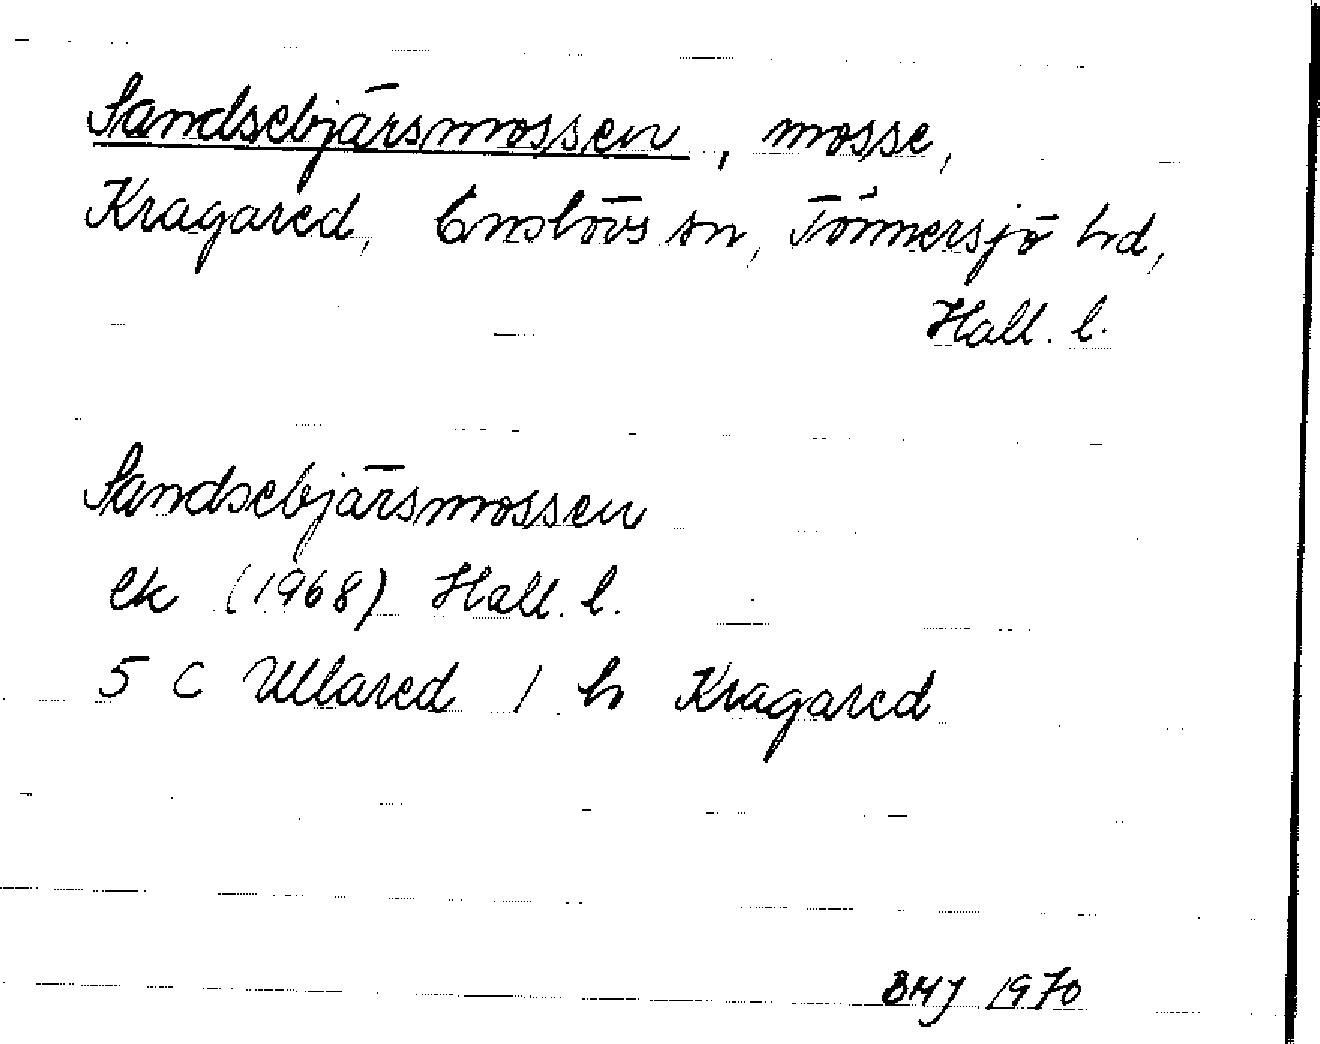 Sandsebjärsmossen, mosse,
Kragared, Enslövs sn, Tönnersjö hd,
Hall. l.
Sandsebjärsmossen
ek (1968) Hall. l.
5 C Ullared / h Kragared
BMJ 1970